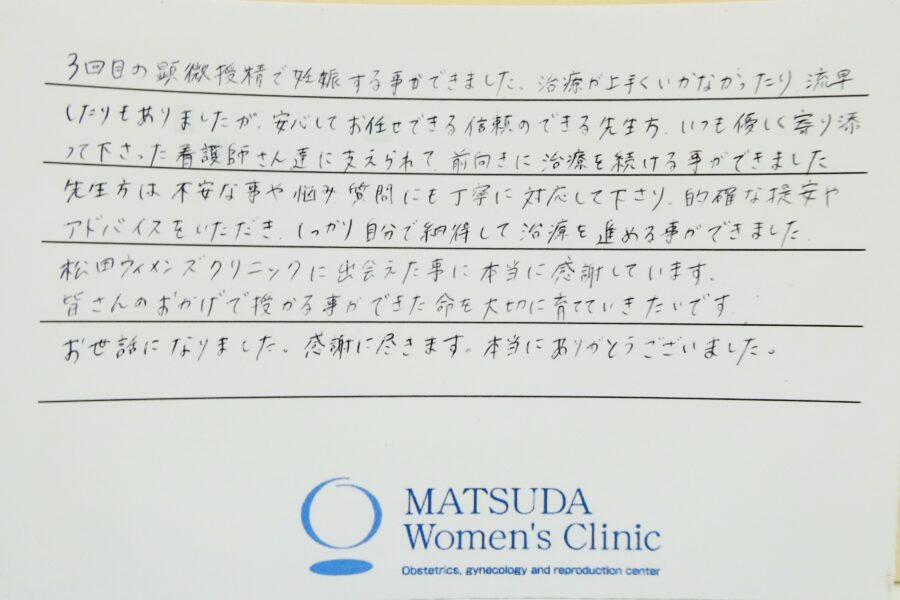 3回目の顕微授精で妊娠する事ができました。治療が上手くいかなかったり、流早
したりもありましたが、安心してお任せできる信頼のできる先生方、いつも優しく寄り添
って下さった看護師さん達に支えられて、前向きに治療を続ける事ができました
先生方は不安な事や悩み質問にも丁寧に対応して下さり、的確な提案や
アドバイスをいただき、しっかり自分で納得して治療を進める事ができました。
松田ウィメンズクリニックに出会えた事に本当に感謝しています。
皆さんのおかげで授かる事ができた命を大切に育てていきたいです
お世話になりました。感謝に尽きます。本当にありがとうございました。
MATSUDA
Women's Clinic
Obstetrics, gynecology and reproduction center